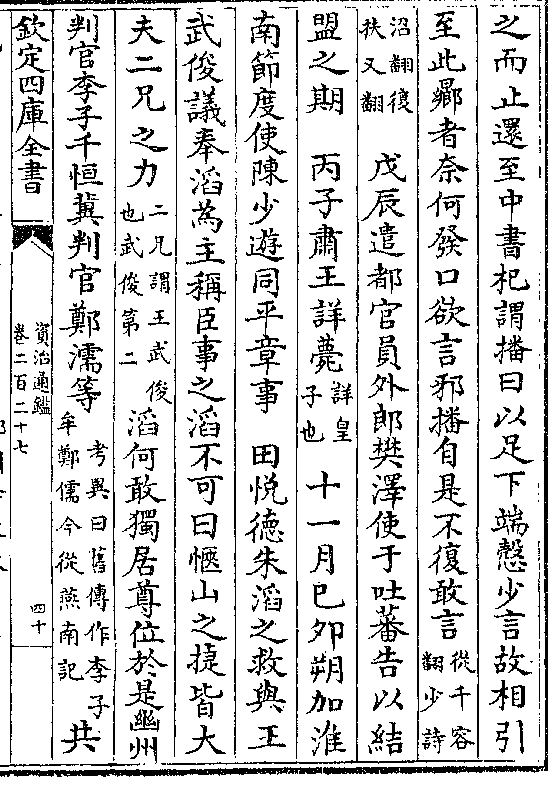 之而止還至中書杞謂播曰以足下端慤少言故相引
至此鄉者奈何發口欲言邪播自是不復敢言從千容翻少詩
沼翻復扶又翻 戊辰遣都官員外郎樊澤使于吐蕃告以結
盟之期 丙子肅王詳薨詳皇子也 十一月己卯朔加淮
南節度使陳少遊同平章事 田悅德朱滔之救與王
武俊議奉滔為主稱臣事之滔不可曰愜山之捷皆大
夫二兄之力二兄謂王武俊也武俊第二滔何敢獨居尊位於是幽州
判官李子千恒冀判官鄭濡等考異曰舊傳作李子牟鄭儒今從燕南記共
欽定四庫全書
資治通鑑
卷二百二十七
四十